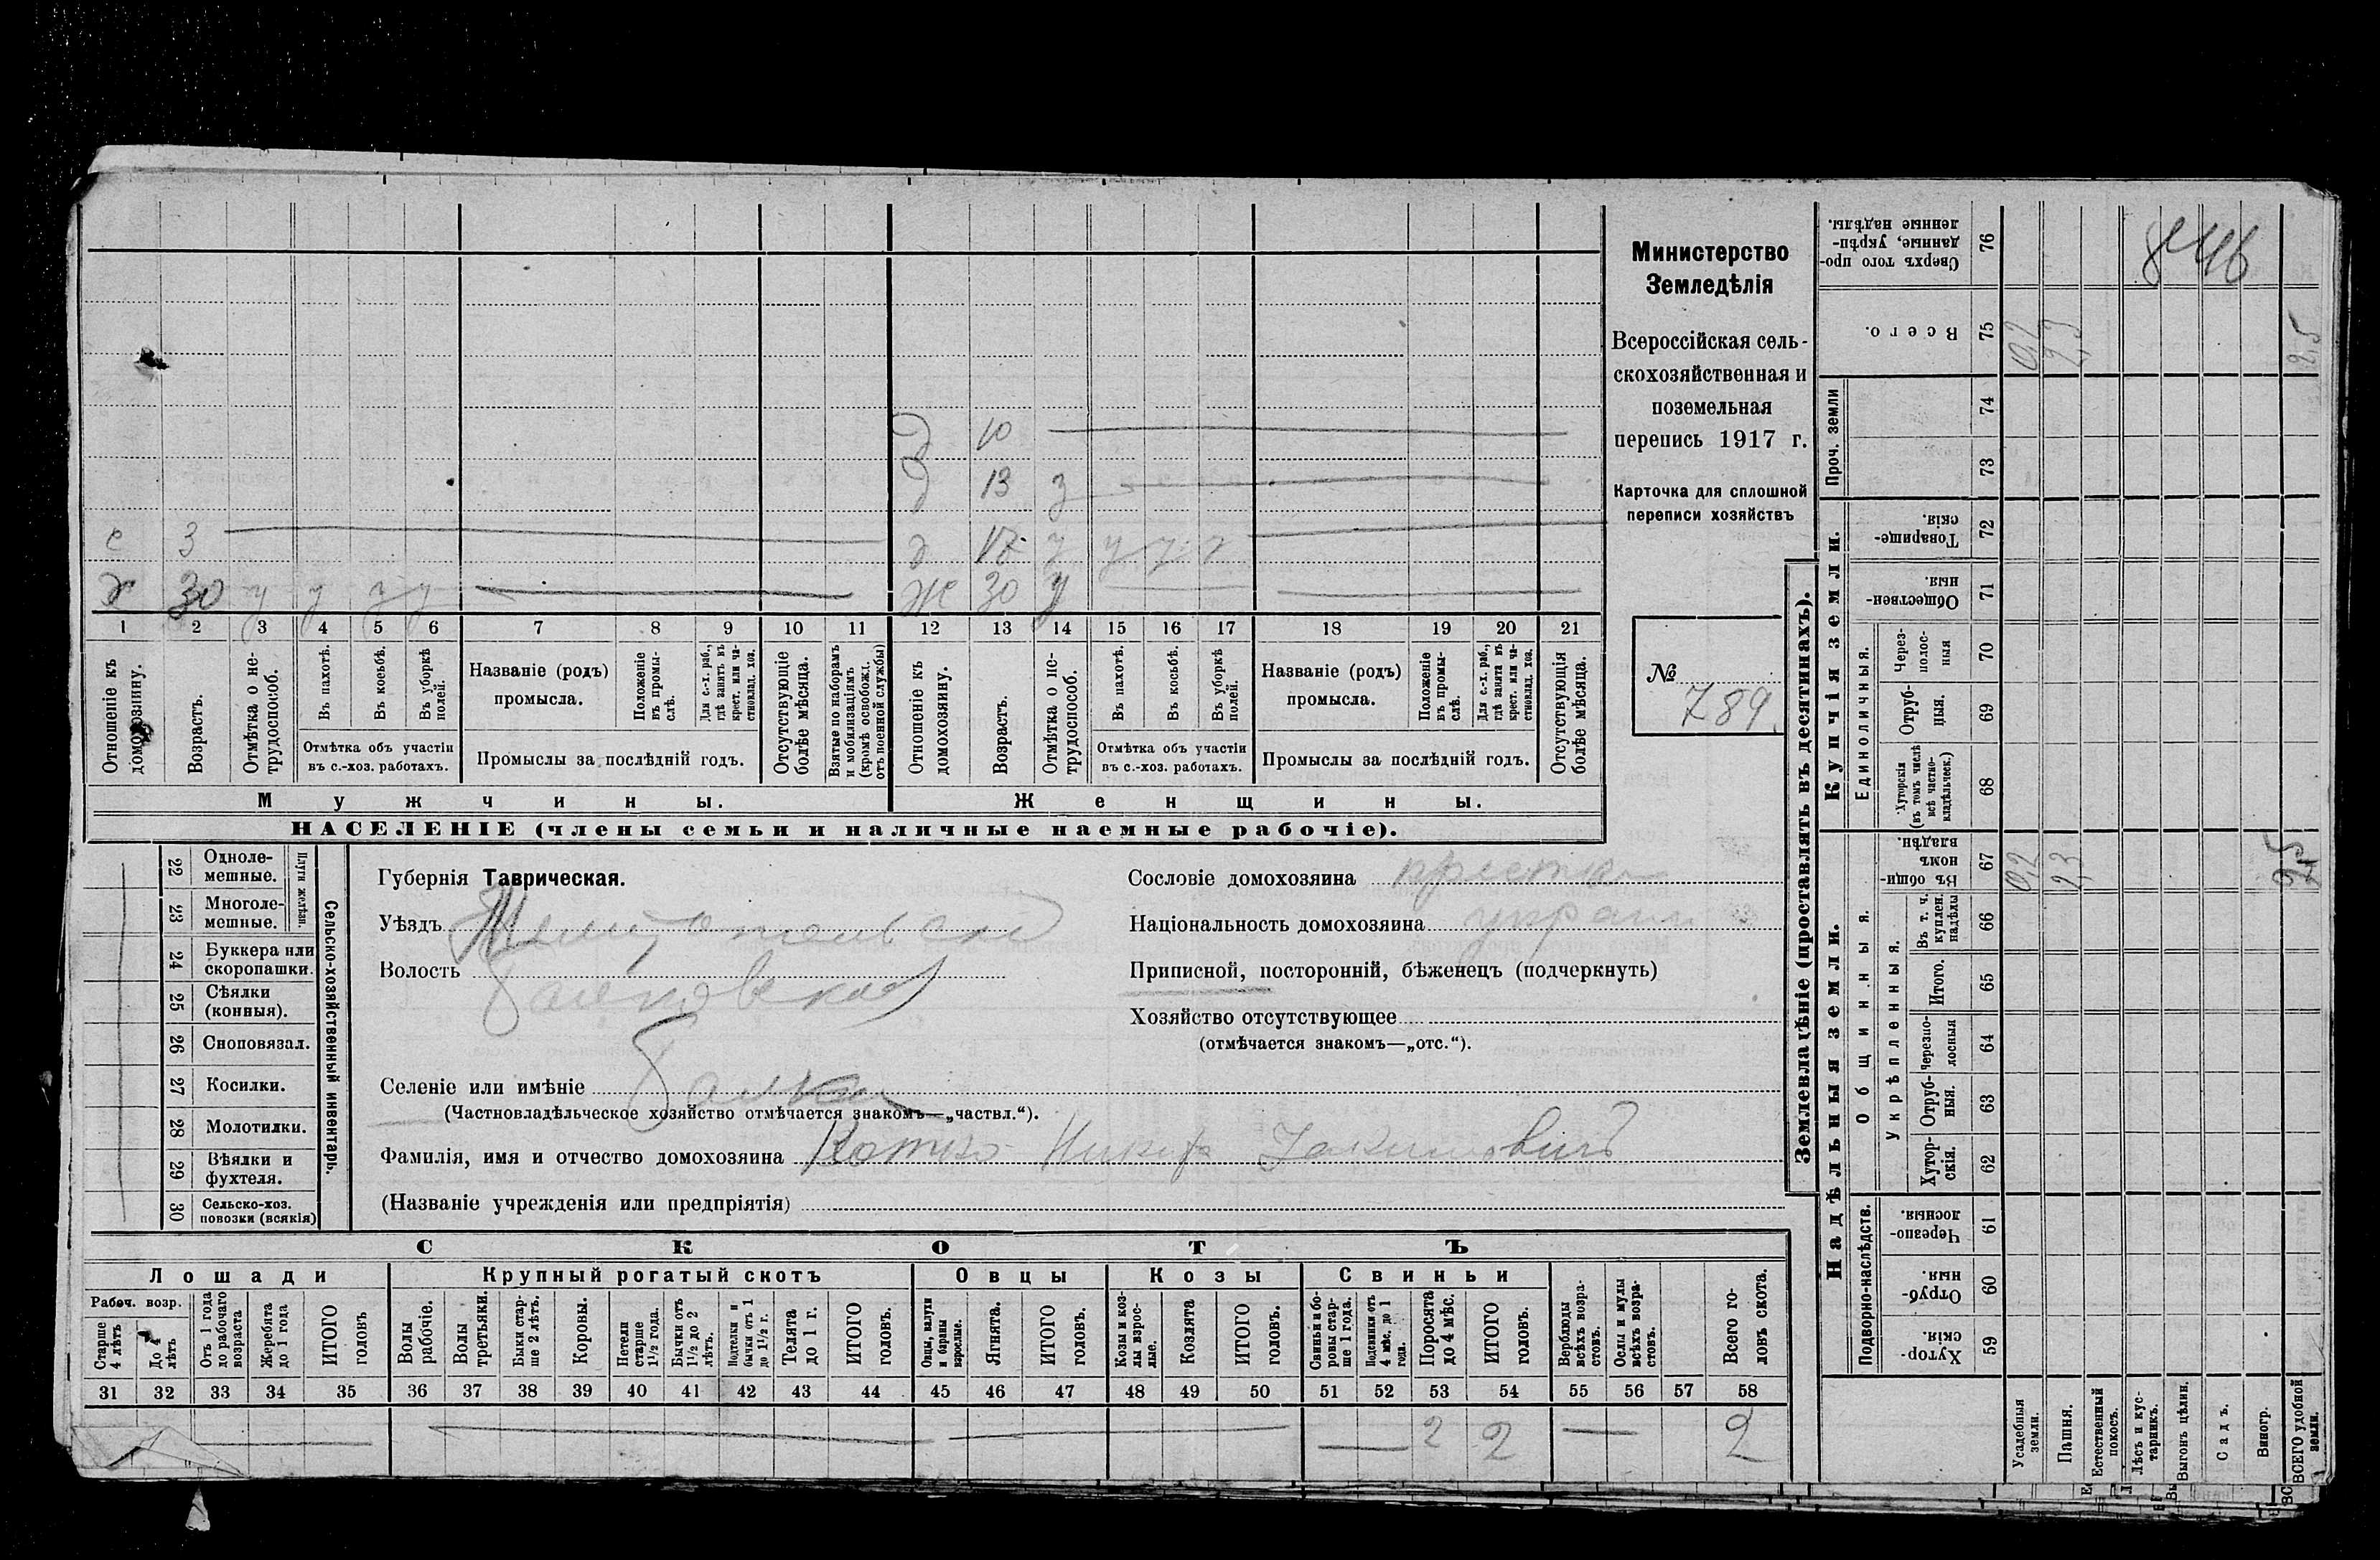 Министерство
Земледѣлія
Всероссійская сель-
скохозяйственная и
поземельная
перепись 1917 г.
Карточка для сплошной
переписи хозяйствъ
№ 789.
846
д 10
д 13 у
с 3 д 17 у у у у
х 30 у у у у ж 30 у
1 2 3 4 5 6 7 8 9 10 11 12 13 14 15 16 17 18 19 20 21
Отношеніе къ домохозяину.
Возрастъ.
Отмѣтка о не-трудоспособ.
Въ пахотѣ.
Въ косьбѣ.
Въ уборкѣ полей.
Отмѣтка объ участіи
въ с.-хоз. работахъ.
Названіе (родъ)
промысла.
Положеніе въ промы-слѣ.
Для с.-х. раб., гдѣ занятъ въ крест. или ча-стновлад. хоз.
Промыслы за послѣдній годъ.
Отсутствующіе болѣе мѣсяца.
Взятые по наборамъ и мобилизаціямъ (кромѣ освобожд. отъ военной службы)
Отношеніе къ домохозяину.
Возрастъ.
Отмѣтка о не-трудоспособ.
Въ пахотѣ.
Въ косьбѣ.
Въ уборкѣ полей.
Отмѣтка объ участіи
въ с.-хоз. работахъ.
Названіе (родъ)
промысла.
Положеніе въ промы-слѣ.
Для с.-х. раб., гдѣ занята въ крест. или ча-стновлад. хоз.
Промыслы за послѣдній годъ.
Отсутствующія болѣе мѣсяца.
Мужчины.
Женщины.
НАСЕЛЕНІЕ (члены семьи и наличные наемные рабочіе).
Сельско-хозяйственный инвентарь.
Плуги желѣзн.
22 Одноле-
мешные.
23 Многоле-
мешные.
24 Буккера или
скоропашки.
25 Сѣялки
(конныя).
26 Сноповязал.
27 Косилки.
28 Молотилки.
29 Вѣялки и
фухтеля.
30 Сельско-хоз.
повозки (всякія)
Губернія Таврическая.
Уѣздъ Мелитопольскій
Волость Балковская
Селеніе или имѣніе Балки
(Частновладѣльческое хозяйство отмѣчается знакомъ—„частвл.“).
Фамилія, имя и отчество домохозяина Котко Никиф Якимовичъ
(Названіе учрежденія или предпріятія)
Сословіе домохозяина крестьян
Національность домохозяина украин
Приписной, посторонній, бѣженецъ (подчеркнуть)
Хозяйство отсутствующее
(отмѣчается знакомъ—„отс.“).
СКОТЪ
Лошади Крупный рогатый скотъ Овцы Козы Свиньи
Рабоч. возр.
Старше 4 лѣтъ
До 4 лѣтъ
Отъ 1 года до рабочаго возраста
Жеребята до 1 года
ИТОГО головъ
Волы рабочіе.
Волы третьяки.
Быки стар-ше 2 лѣтъ.
Коровы.
Нетели старше 1½ года.
Бычки отъ 1½ до 2 лѣтъ.
Подтелки и бычки отъ 1 до 1½ г.
Телята до 1 г.
ИТОГО головъ.
Овцы, валухи и бараны взрослые.
Ягнята.
ИТОГО головъ.
Козы и коз-лы взрос-лые.
Козлята
ИТОГО головъ.
Свиньи и бо-ровы стар-ше 1 года.
Подсвинки отъ 4 мѣс. до 1 года.
Поросята до 4 мѣс.
ИТОГО головъ.
Верблюды всѣхъ возра-стовъ.
Ослы и мулы всѣхъ возра-стовъ.
Всего го-ловъ скота.
31 32 33 34 35 36 37 38 39 40 41 42 43 44 45 46 47 48 49 50 51 52 53 54 55 56 57 58
2 2 2
Землевладѣніе (проставлять въ десятинахъ).
Надѣльныя земли.
Купчія земли.
Проч. земли
Подворно-наслѣдств.
Общинныя.
Укрѣпленныя.
Единоличныя.
Хутор-скія. 59
Отруб-ныя. 60
Черезпо-лосныя. 61
Хутор-скія. 62
Отруб-ныя. 63
Черезпо-лосныя 64
Итого. 65
Въ т. ч. куплен. надѣлы 66
Въ общи-номъ владѣн. 67
Хуторскія (въ томъ числѣ всѣ частно-владѣльческ.) 68
Отруб-ныя. 69
Через-полос-ныя 70
Обществен-ныя. 71
Товарище-скія. 72
73
74
Всего. 75
Сверхъ того про-данные, укрѣп-ленные надѣлы. 76
Усадебныя земли. 0,2 0,2
Пашня. 2,3 2,3
Естественный покосъ.
Лѣсъ и кус-тарникъ.
Выгонъ цѣлин.
Садъ.
Виногр.
ВСЕГО удобной земли. 2,5 2,5